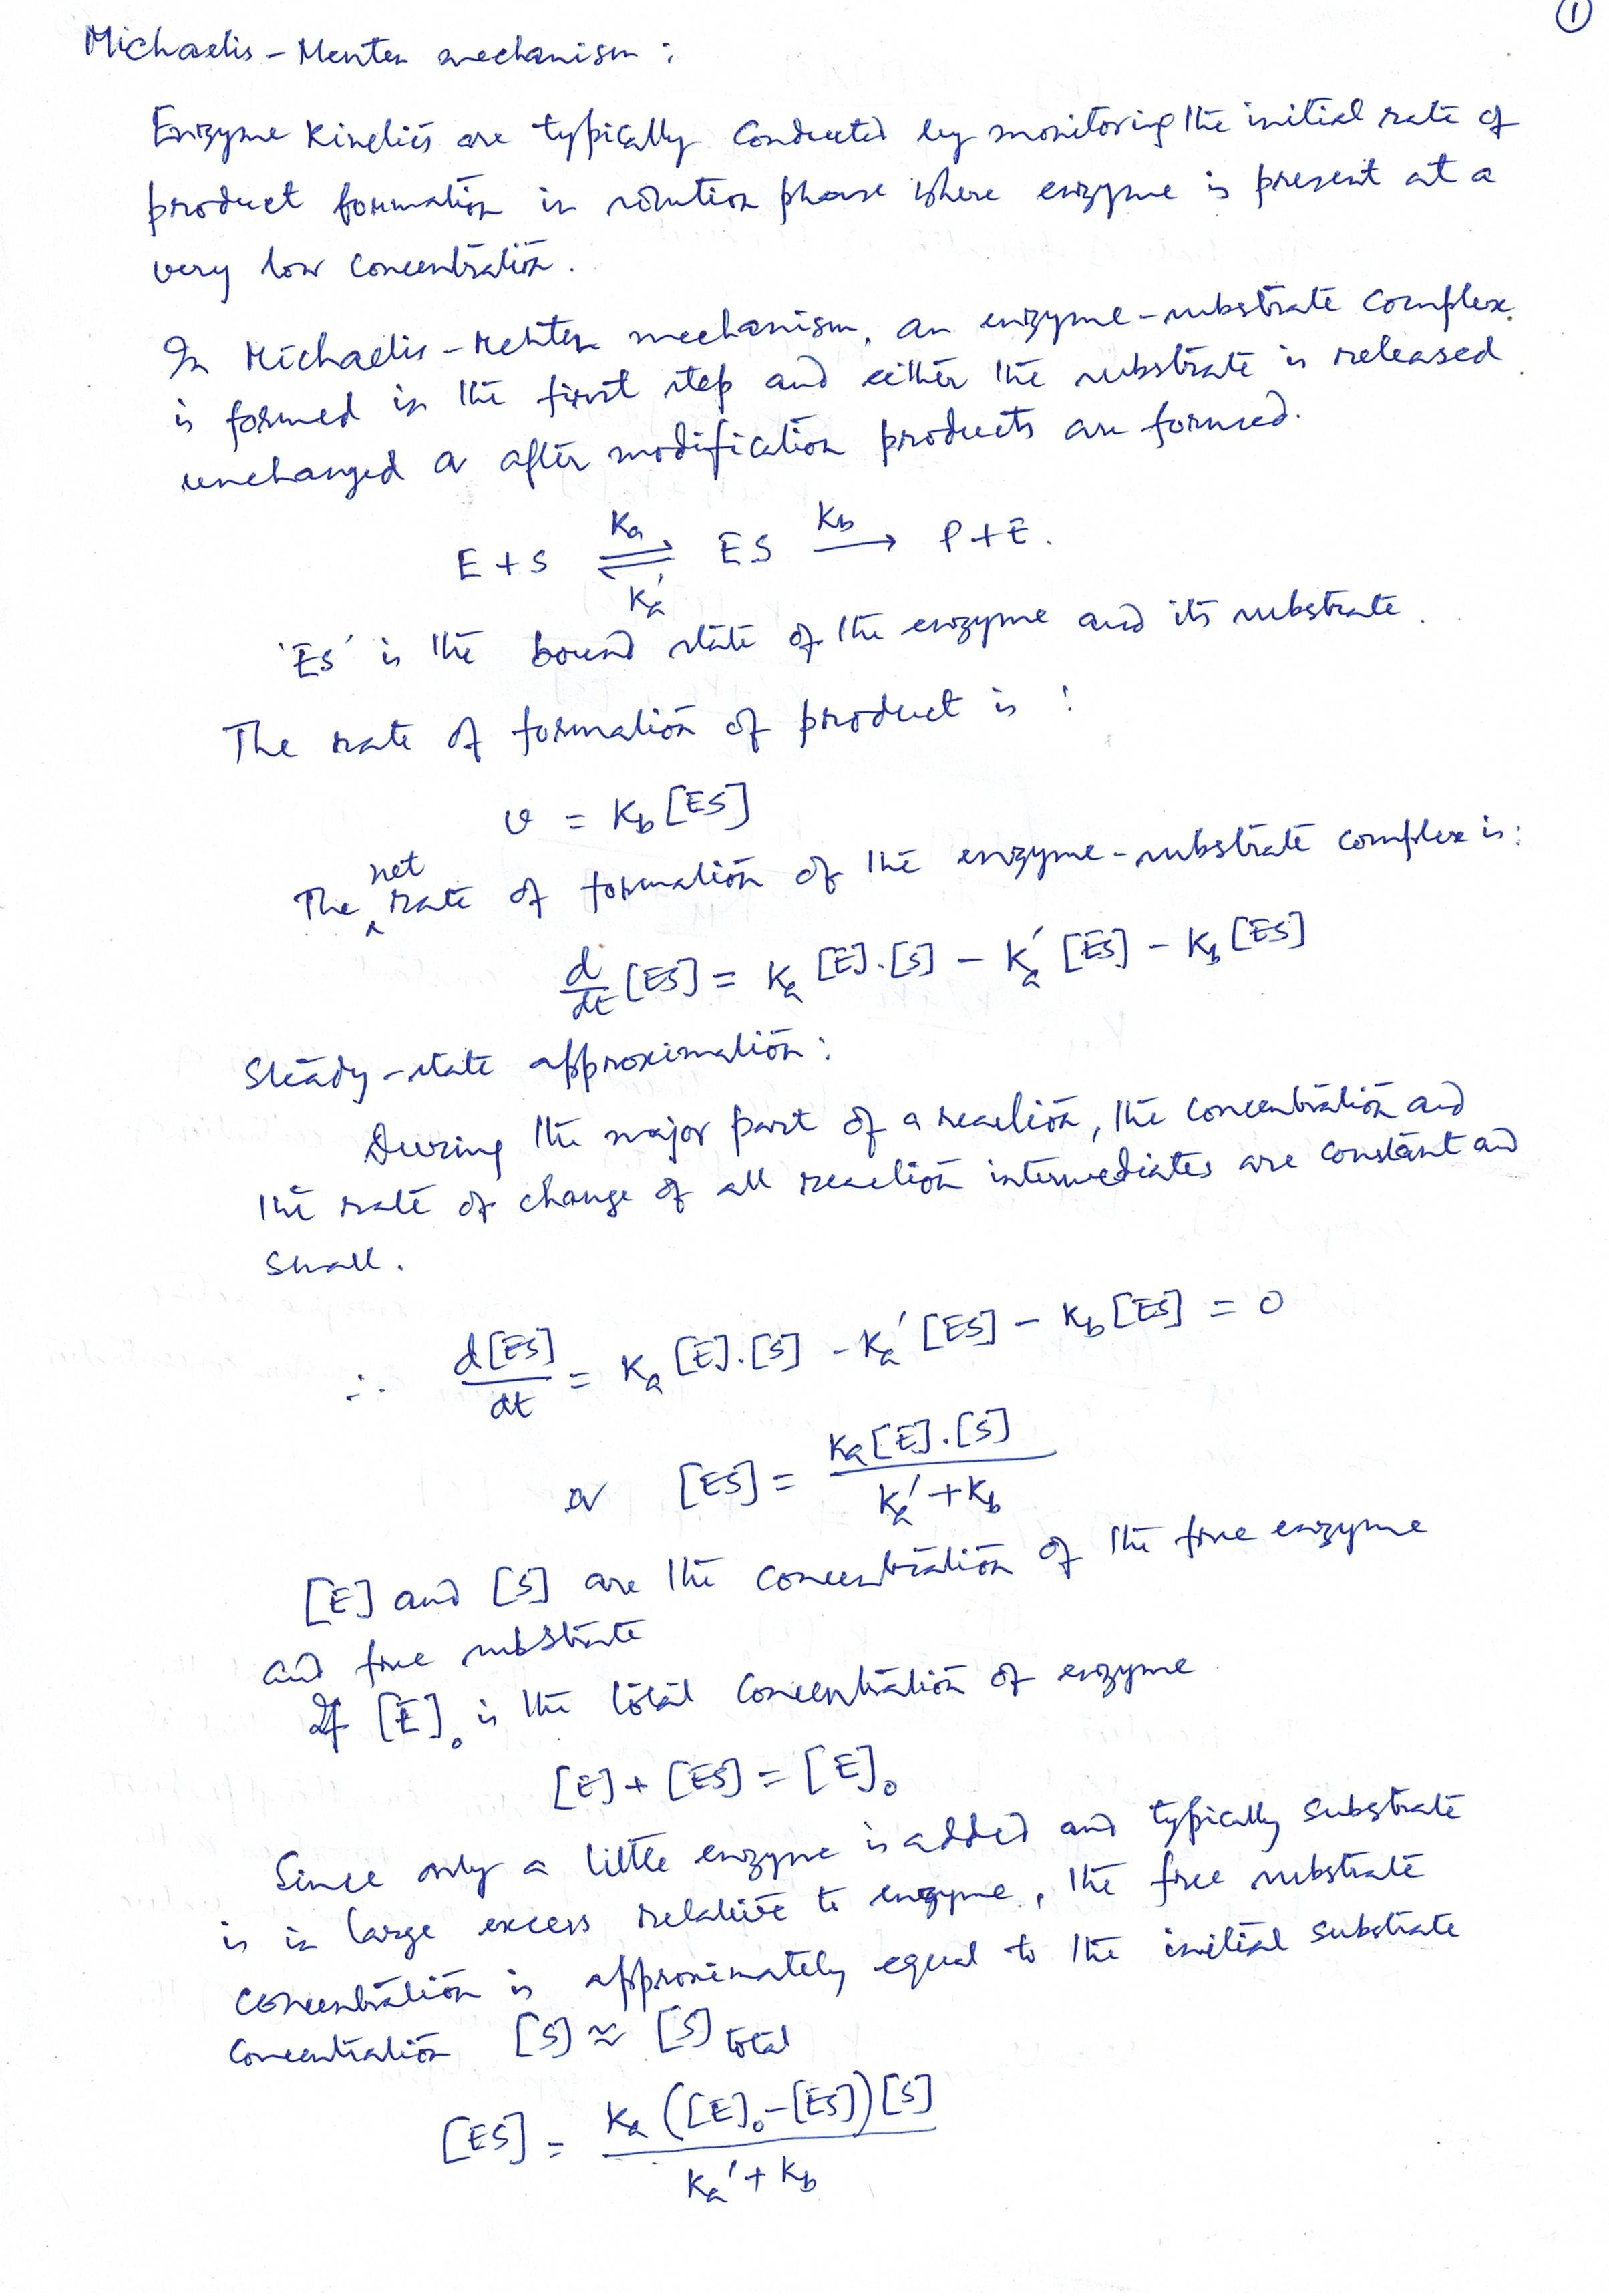 ①
Michaelis-Menten mechanism :
Enzyme Kinetics are typically conducted by monitoring the initial rate of
product formation in solution phase where enzyme is present at a
very low concentration.
In Michaelis-Menten mechanism, an enzyme-substrate complex
is formed in the first step and either the substrate is released
unchanged or after modification products are formed.
E + S ⇌ ES → P + E. (Ka, Ka', Kb)
'ES' is the bound state of the enzyme and its substrate.
The rate of formation of product is :
v = Kb [ES]
The net rate of formation of the enzyme-substrate complex is :
d/dt [ES] = Ka [E].[S] - Ka' [ES] - Kb [ES]
Steady-state approximation :
During the major part of a reaction, the concentration and
the rate of change of all reaction intermediates are constant and
small.
∴ d[ES]/dt = Ka [E].[S] - Ka' [ES] - Kb [ES] = 0
or [ES] = Ka[E].[S] / Ka' + Kb
[E] and [S] are the concentration of the free enzyme
and free substrate
If [E]₀ is the total concentration of enzyme
[E] + [ES] = [E]₀
Since only a little enzyme is added and typically substrate
is in large excess relative to enzyme, the free substrate
concentration is approximately equal to the initial substrate
concentration [S] ≈ [S] total
[ES] = Ka ([E]₀-[ES])[S] / Ka' + Kb